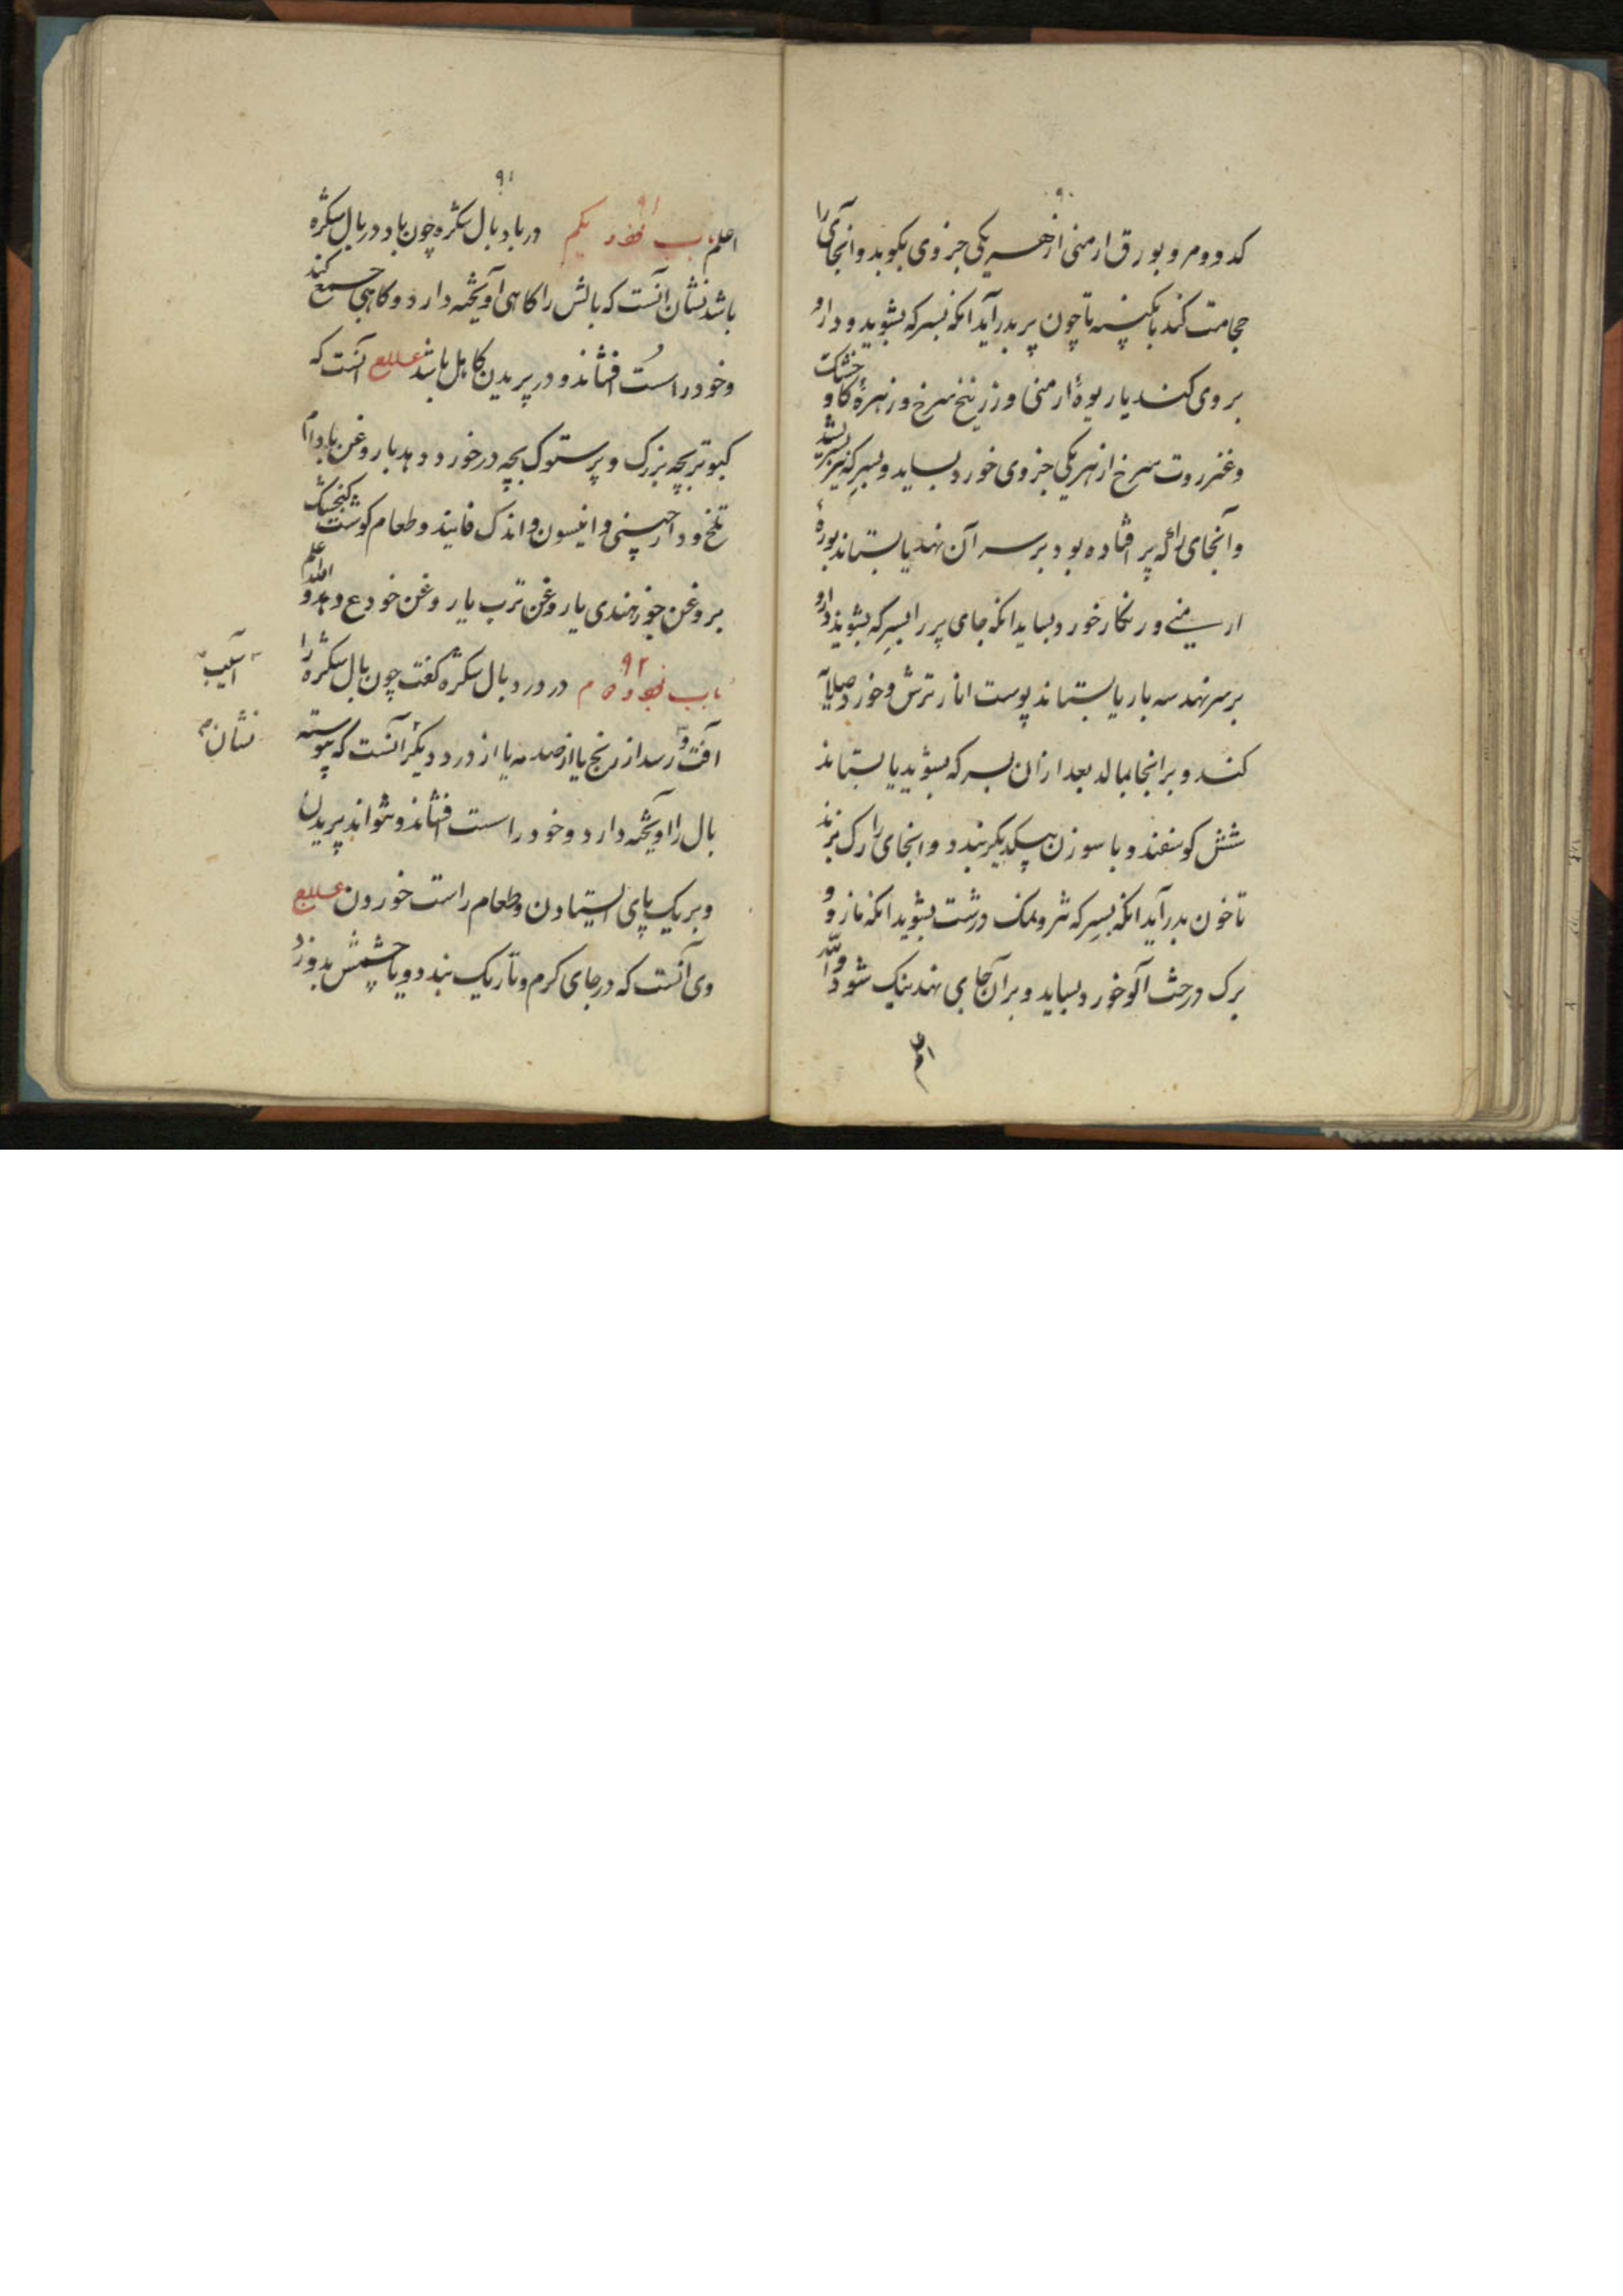 ۹۰
کدو و مر و بورق ارمنی از هر یکی جزوی بکوبد و آنجای را
حجامت کند باکینه تا چون پر بدر آید انکه بسرکه بشوید و دارو
بر وی کند یا ریوهٔ ارمنی و زرنیخ سرخ و زهرهٔ کاو خشک
و عنزروت سرخ از هر یکی جزوی خورد بساید و بسرکه تیز بشوید
و آنجای را که پر افتاده بود بر سر آن نهد یا بستاند بورهٔ
ارمنی و زنکار خورد بساید انکه جای پر را بسرکه بشوید دارو
بر سر نهد سه بار یا بستاند پوست انار ترش و خورد صلایه
کند و بر انجا بمالد بعد از ان بسرکه بشوید یا بستاند
شش کوسفند و با سوزن بیکدیکر بندد و انجای را رک بزند
تا خون بدر آید انکه بسرکه تر و نمک درشت بشوید انکه مازو و
برک درخت آلو خورد بساید و بر آن جای نهد نیک شود والله
اعلم
۹۱
اعلم باب نود یکم ۹۱ در باد بال شکره چون باد در بال شکره
باشد نشان آنست که بالش را کاهی آویخته دارد و کاهی جمع کند
و خود را سُست افشاند و در پریدن کاهل باشد علاج آنست که
کبوتر بچه بزرک و پرستوک بچه در خورد دهد با روغن بادام
تلخ و دارچینی و انیسون و اندک فانید و طعام کوشت کنجشک
بروغن جوز هندی یا روغن ترب یا روغن خروع دهد والله اعلم
باب نود دوم ۹۲ در درد بال شکره کفت چون بال شکره را
آفت رسد از رنج یا از صدمه یا از درد دیکر آنست که پیوسته
بال را آویخته دارد و خود را سست افشاند و نتواند پریدن
و بر یک پای ایستادن و طعام راست خوردن علاج
وی آنست که در جای کرم و تاریک بندد و یا چشمش بدوزد
آسیب
نشان